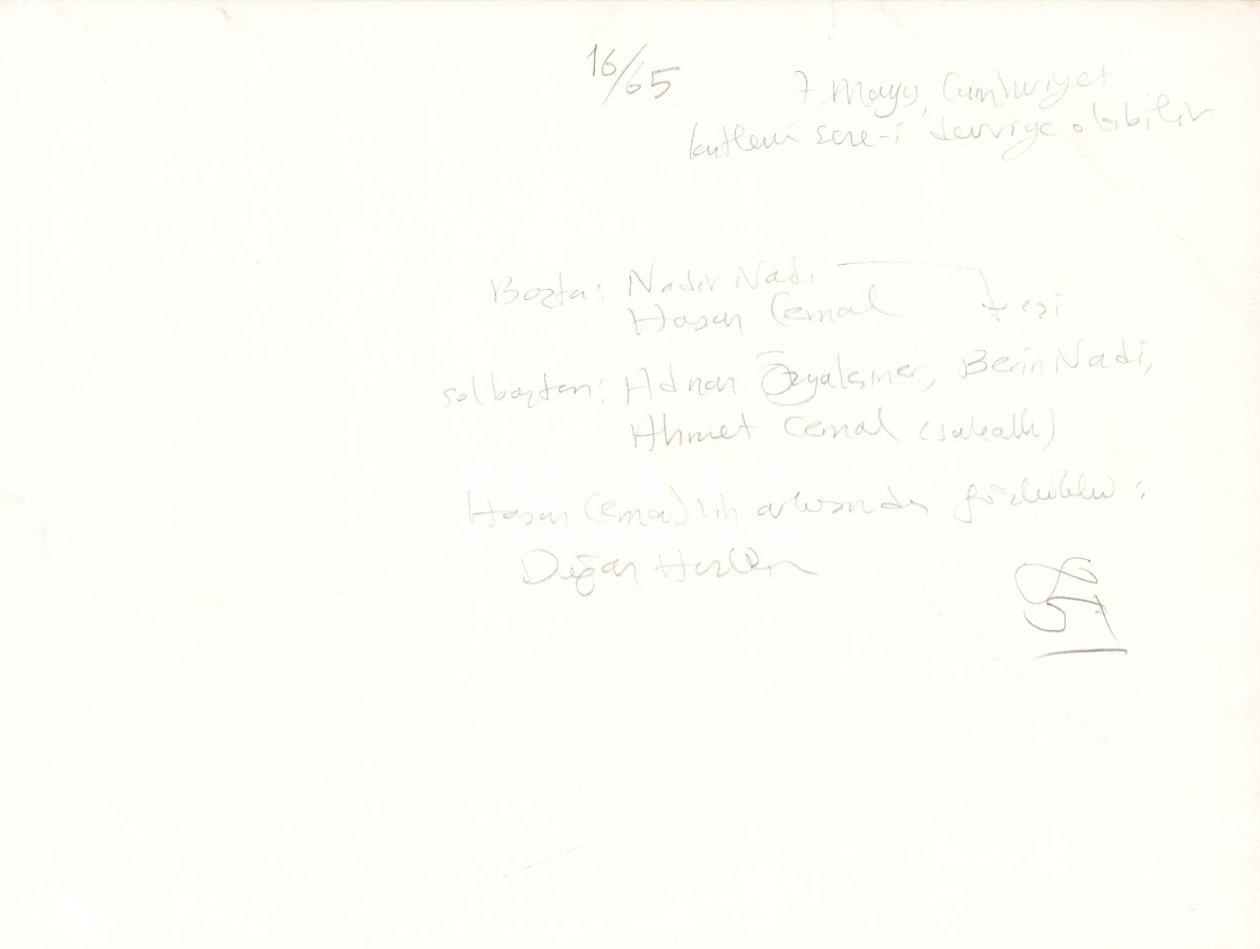 16/65
7 Mayıs, Cumhuriyet
kutlama sene-i devriye olabilir
Başta: Nadir Nadi
Hasan Cemal
sol baştan: Adnan Özyalçıner, Berin Nadi,
Ahmet Cemal (sakallı)
Hasan Cemal'in arkasında gözlüklü:
Doğan Hızlan